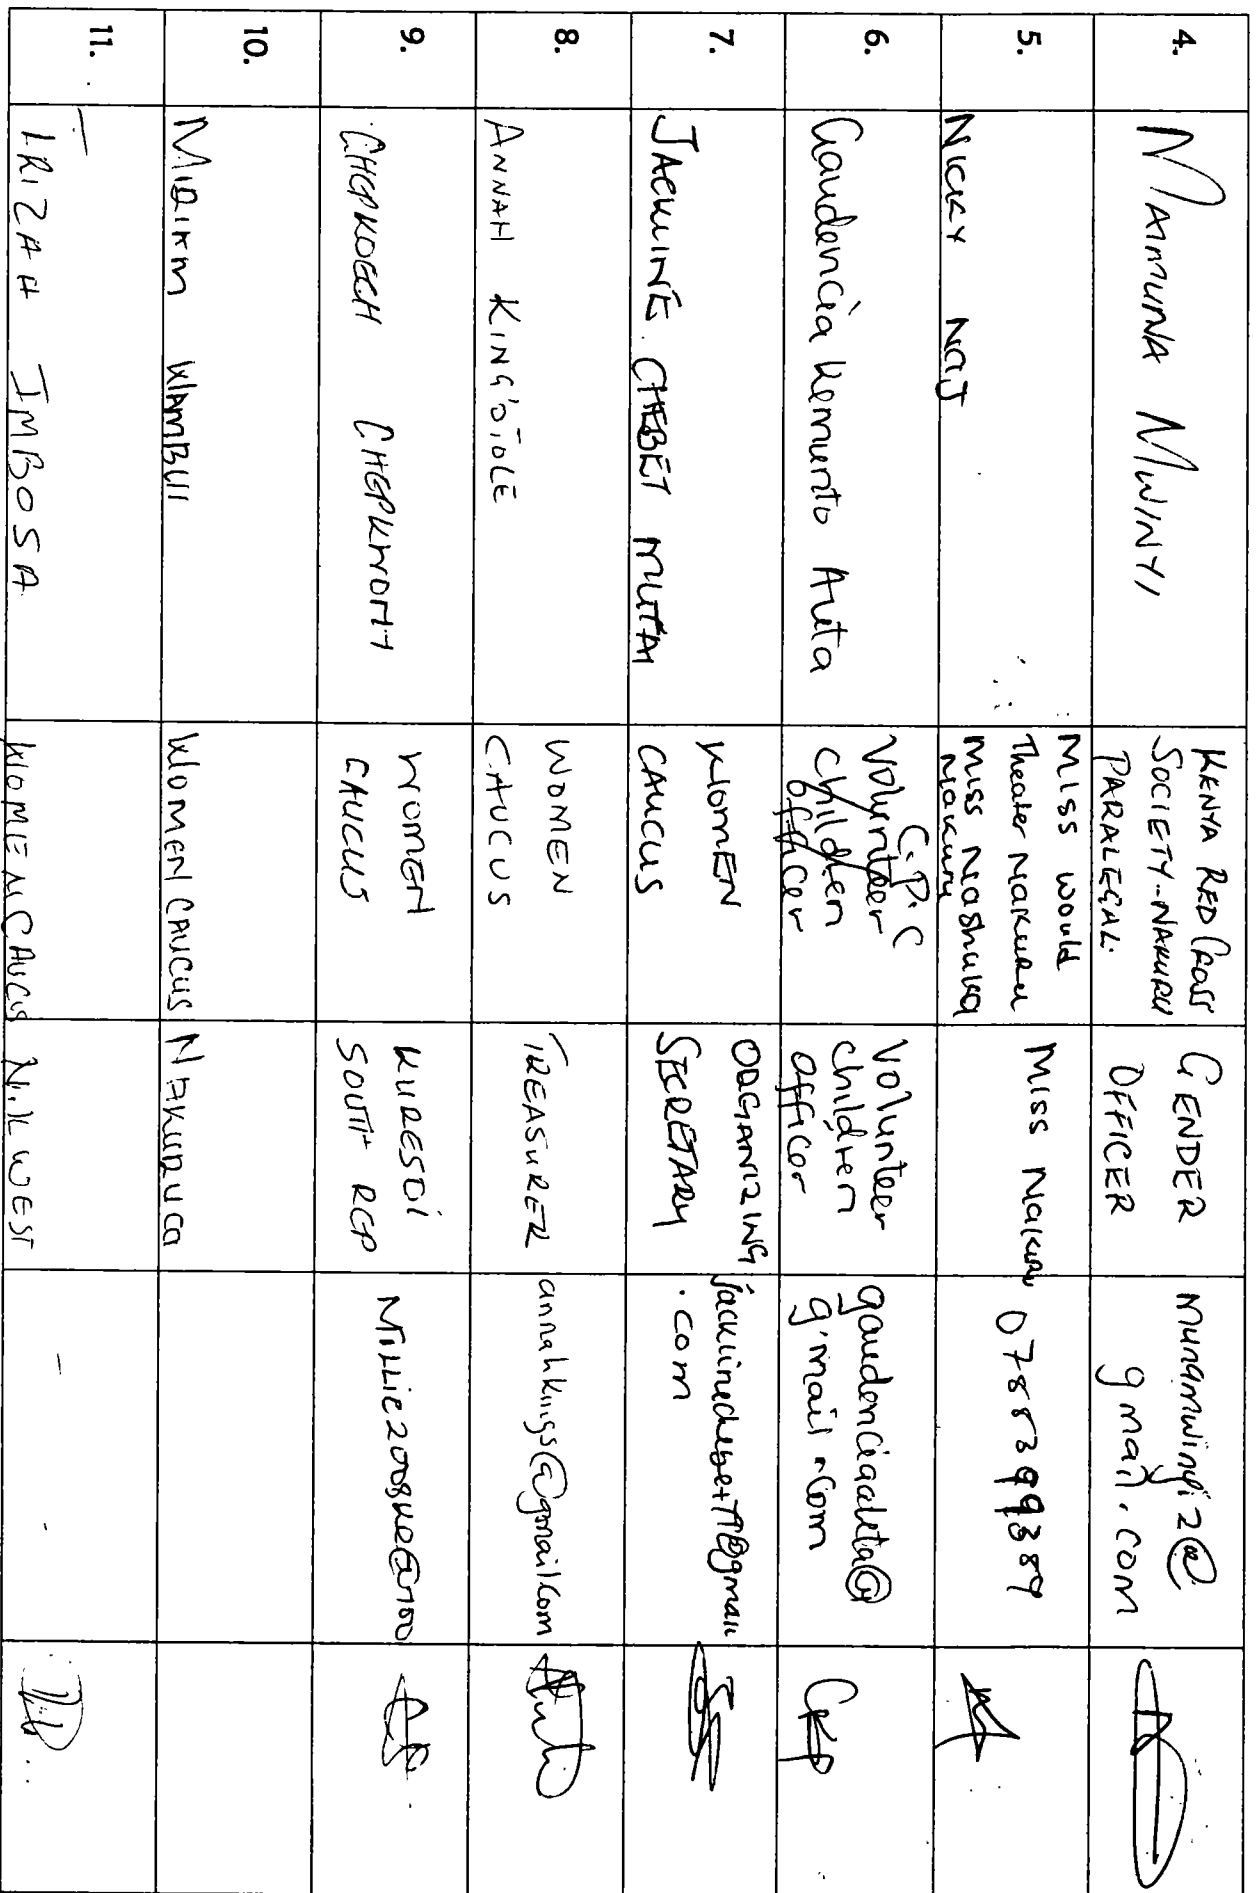 4.
MAIMUNA MWINYI
KENYA RED CROSS
SOCIETY-NAKURU
PARALEGAL.
GENDER
OFFICER
munamwinyi2@
gmail.com
5.
NICKY NAJ
Miss would
Theater Nakuru
Miss Mashuka
Nakuru
Miss Nakuru
0788399389
6.
Gaudencia Kemunto Auta
C.P.C
Volunteer
children
officer
Volunteer
children
officer
g'mail.com
7.
JACKLINE CHEBET MUTAI
WOMEN
CAUCUS
ORGANIZING
SECRETARY
.com
8.
ANNAH KING'OTOLE
WOMEN
CAUCUS
TREASURER
annahkings@gmail.com
9.
CHEPKOECH CHEPKWONY
WOMEN
CAUCUS
KURESOI
SOUTH REP
10.
MIRIAM WAMBUI
WOMEN CAUCUS
11.
TRIZAH IMBOSA
WOMEN CAUCUS
WEST
-
-